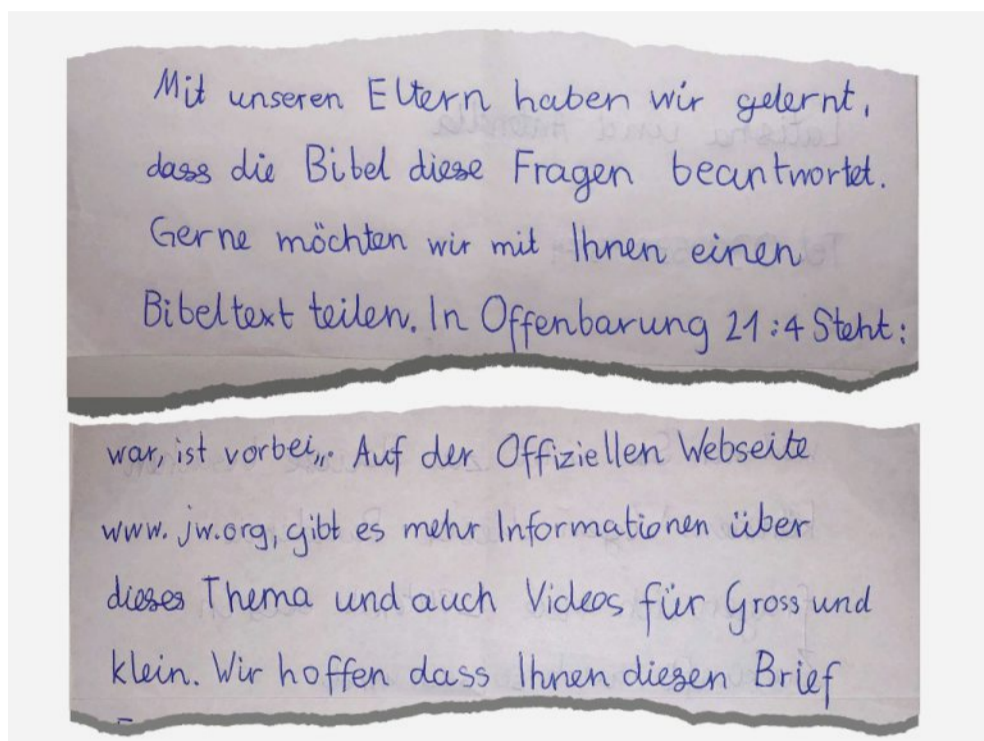 Mit unseren Eltern haben wir gelernt,
dass die Bibel diese Fragen beantwortet.
Gerne möchten wir mit Ihnen einen
Bibeltext teilen. In Offenbarung 21:4 Steht:
war, ist vorbei„. Auf der Offiziellen Webseite
www.jw.org, gibt es mehr Informationen über
dieses Thema und auch Videos für Gross und
klein. Wir hoffen dass Ihnen diesen Brief